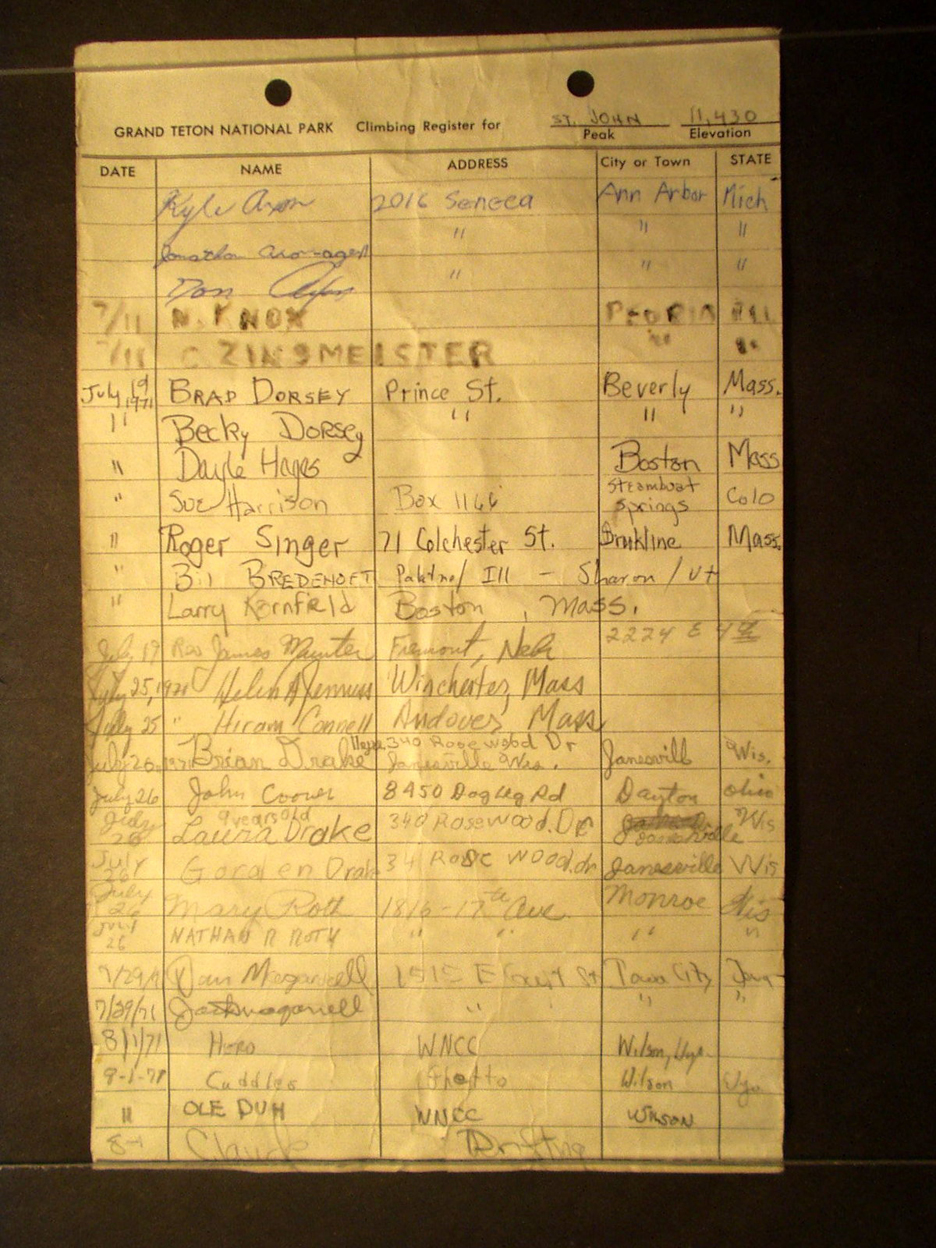 GRAND TETON NATIONAL PARK Climbing Register for ST. JOHN 11,430
Peak Elevation
DATE NAME ADDRESS City or Town STATE
Kyle 2016 Seneca Ann Arbor Mich
Jonathan " " "
Don " " "
7/11 N. KNOX PEORIA ILL
7/11 C ZINSMEISTER " "
July 19 1971 BRAD DORSEY Prince St. Beverly Mass.
" Becky Dorsey " " "
" Dayle Hayes Boston Mass
" Sue Harrison Box 1166 Steamboat Springs Colo
" Roger Singer 71 Colchester St. Brukline Mass.
" Bil BREDEHOFT Ill - Sharon / Vt
" Larry Kornfield Boston, Mass.
2224 E 4th
July 19 Rev James Fremont, Neb
July 25, 1971 Helen A Winchester, Mass
July 25 " Hiram Connell Andover, Mass
July 26, 1971 Brian Drake 340 Rosewood Dr Janesville Wis. Janesvill Wis.
July 26 John Coover 8450 Dog Leg Rd Dayton ohio
July 26 9 years old Laura Drake 340 Rosewood. Dr Wis
July 26 Gorden Drak 34 Rose wood.dr Janesville Wis
July 26 Mary Roth 1816-17th Ave Monroe Wis
July 26 NATHAN R ROTH " " " "
7/29/71 Dan 1515 E St Iowa City
7/29/71 " "
8/1/71 Hero WNCC Wilson, Wyo.
8-1-71 Cuddles Ghetto Wilson Wyo.
" OLE DUH WNCC WILSON
8-1 Claude Drifting